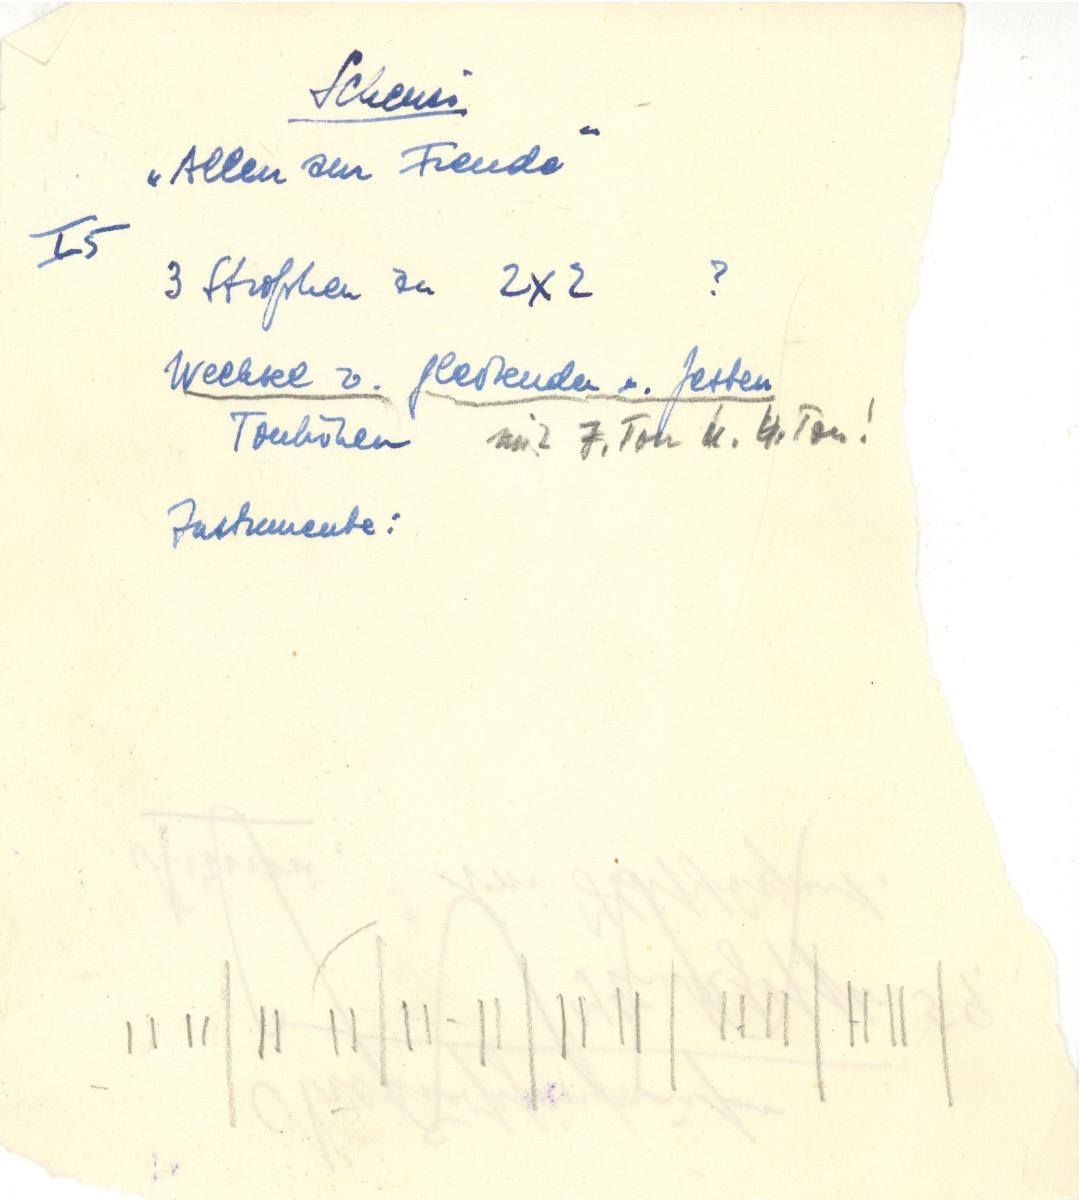 Schemi
„Allen zur Freude“
I 5
3 Strophen zu 2x2 ?
Wechsel v. gleitenden u. festen
Tonhöhen mit 7. Ton u. 4. Ton!
Instrumente: